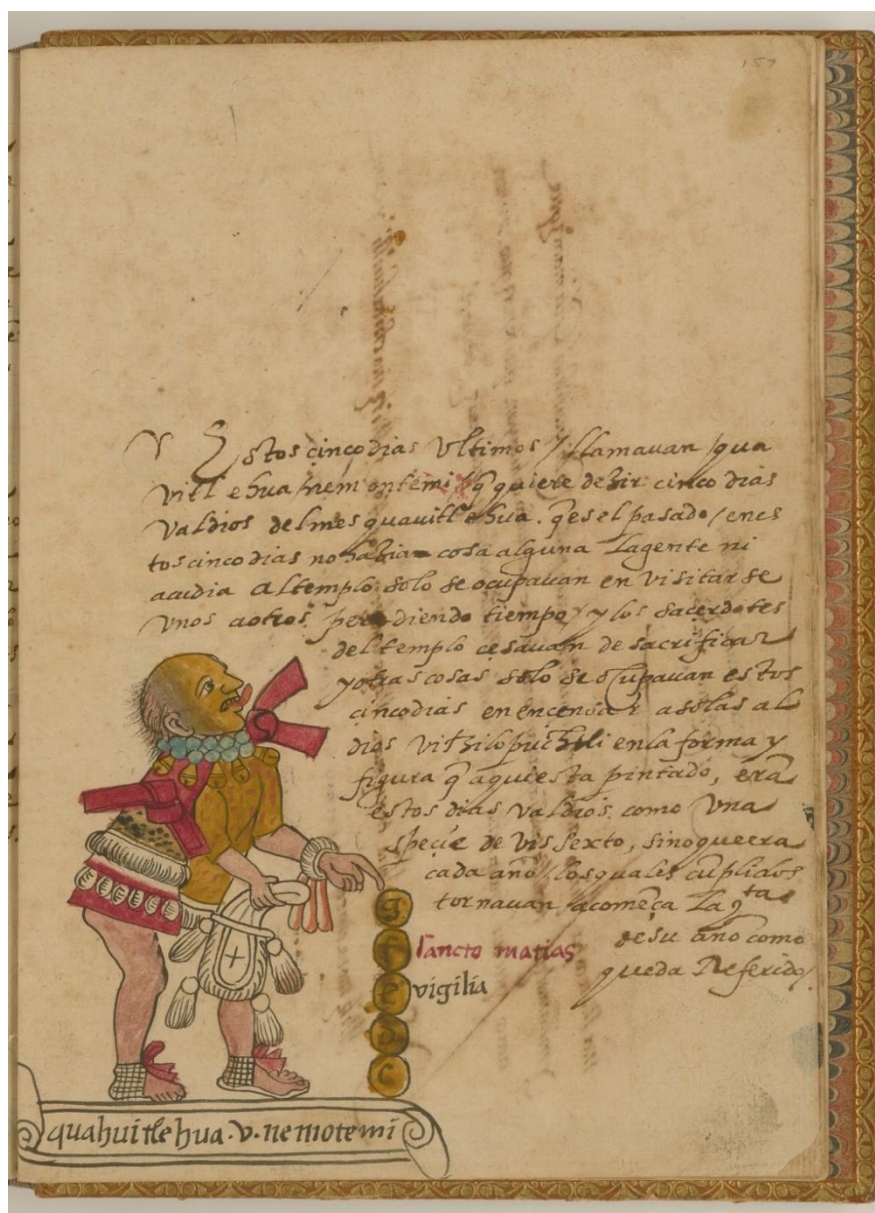 157
V Estos cinco dias Vltimos / llamauan / qua
vitl ehua / nem ontemi / q̃ quiere dezir cinco dias
Valdios del mes quauitl ehua. q̃ es el pasado / en es
tos cinco dias no hazia cosa alguna La gente ni
acudia al templo, solo se ocupauan en visitarse
vnos a otros perdiendo tiempo / y los sacerdotes
del templo cesauan de sacrificar
y otras cosas solo se ocupauan estos
cinco dias en encensar a solas al
dios Vitzilopuchtli en la forma y
figura q̃ aqui esta pintado, erã
estos dias valdios como vna
specie de vissexto, sino que era
cada año / los quales cũplidos
tornauan a comẽça La qta
de su año como
queda Referido /.
g
f sancto matias
e vigilia
d
c
quahuitlehua · v · nemotemi